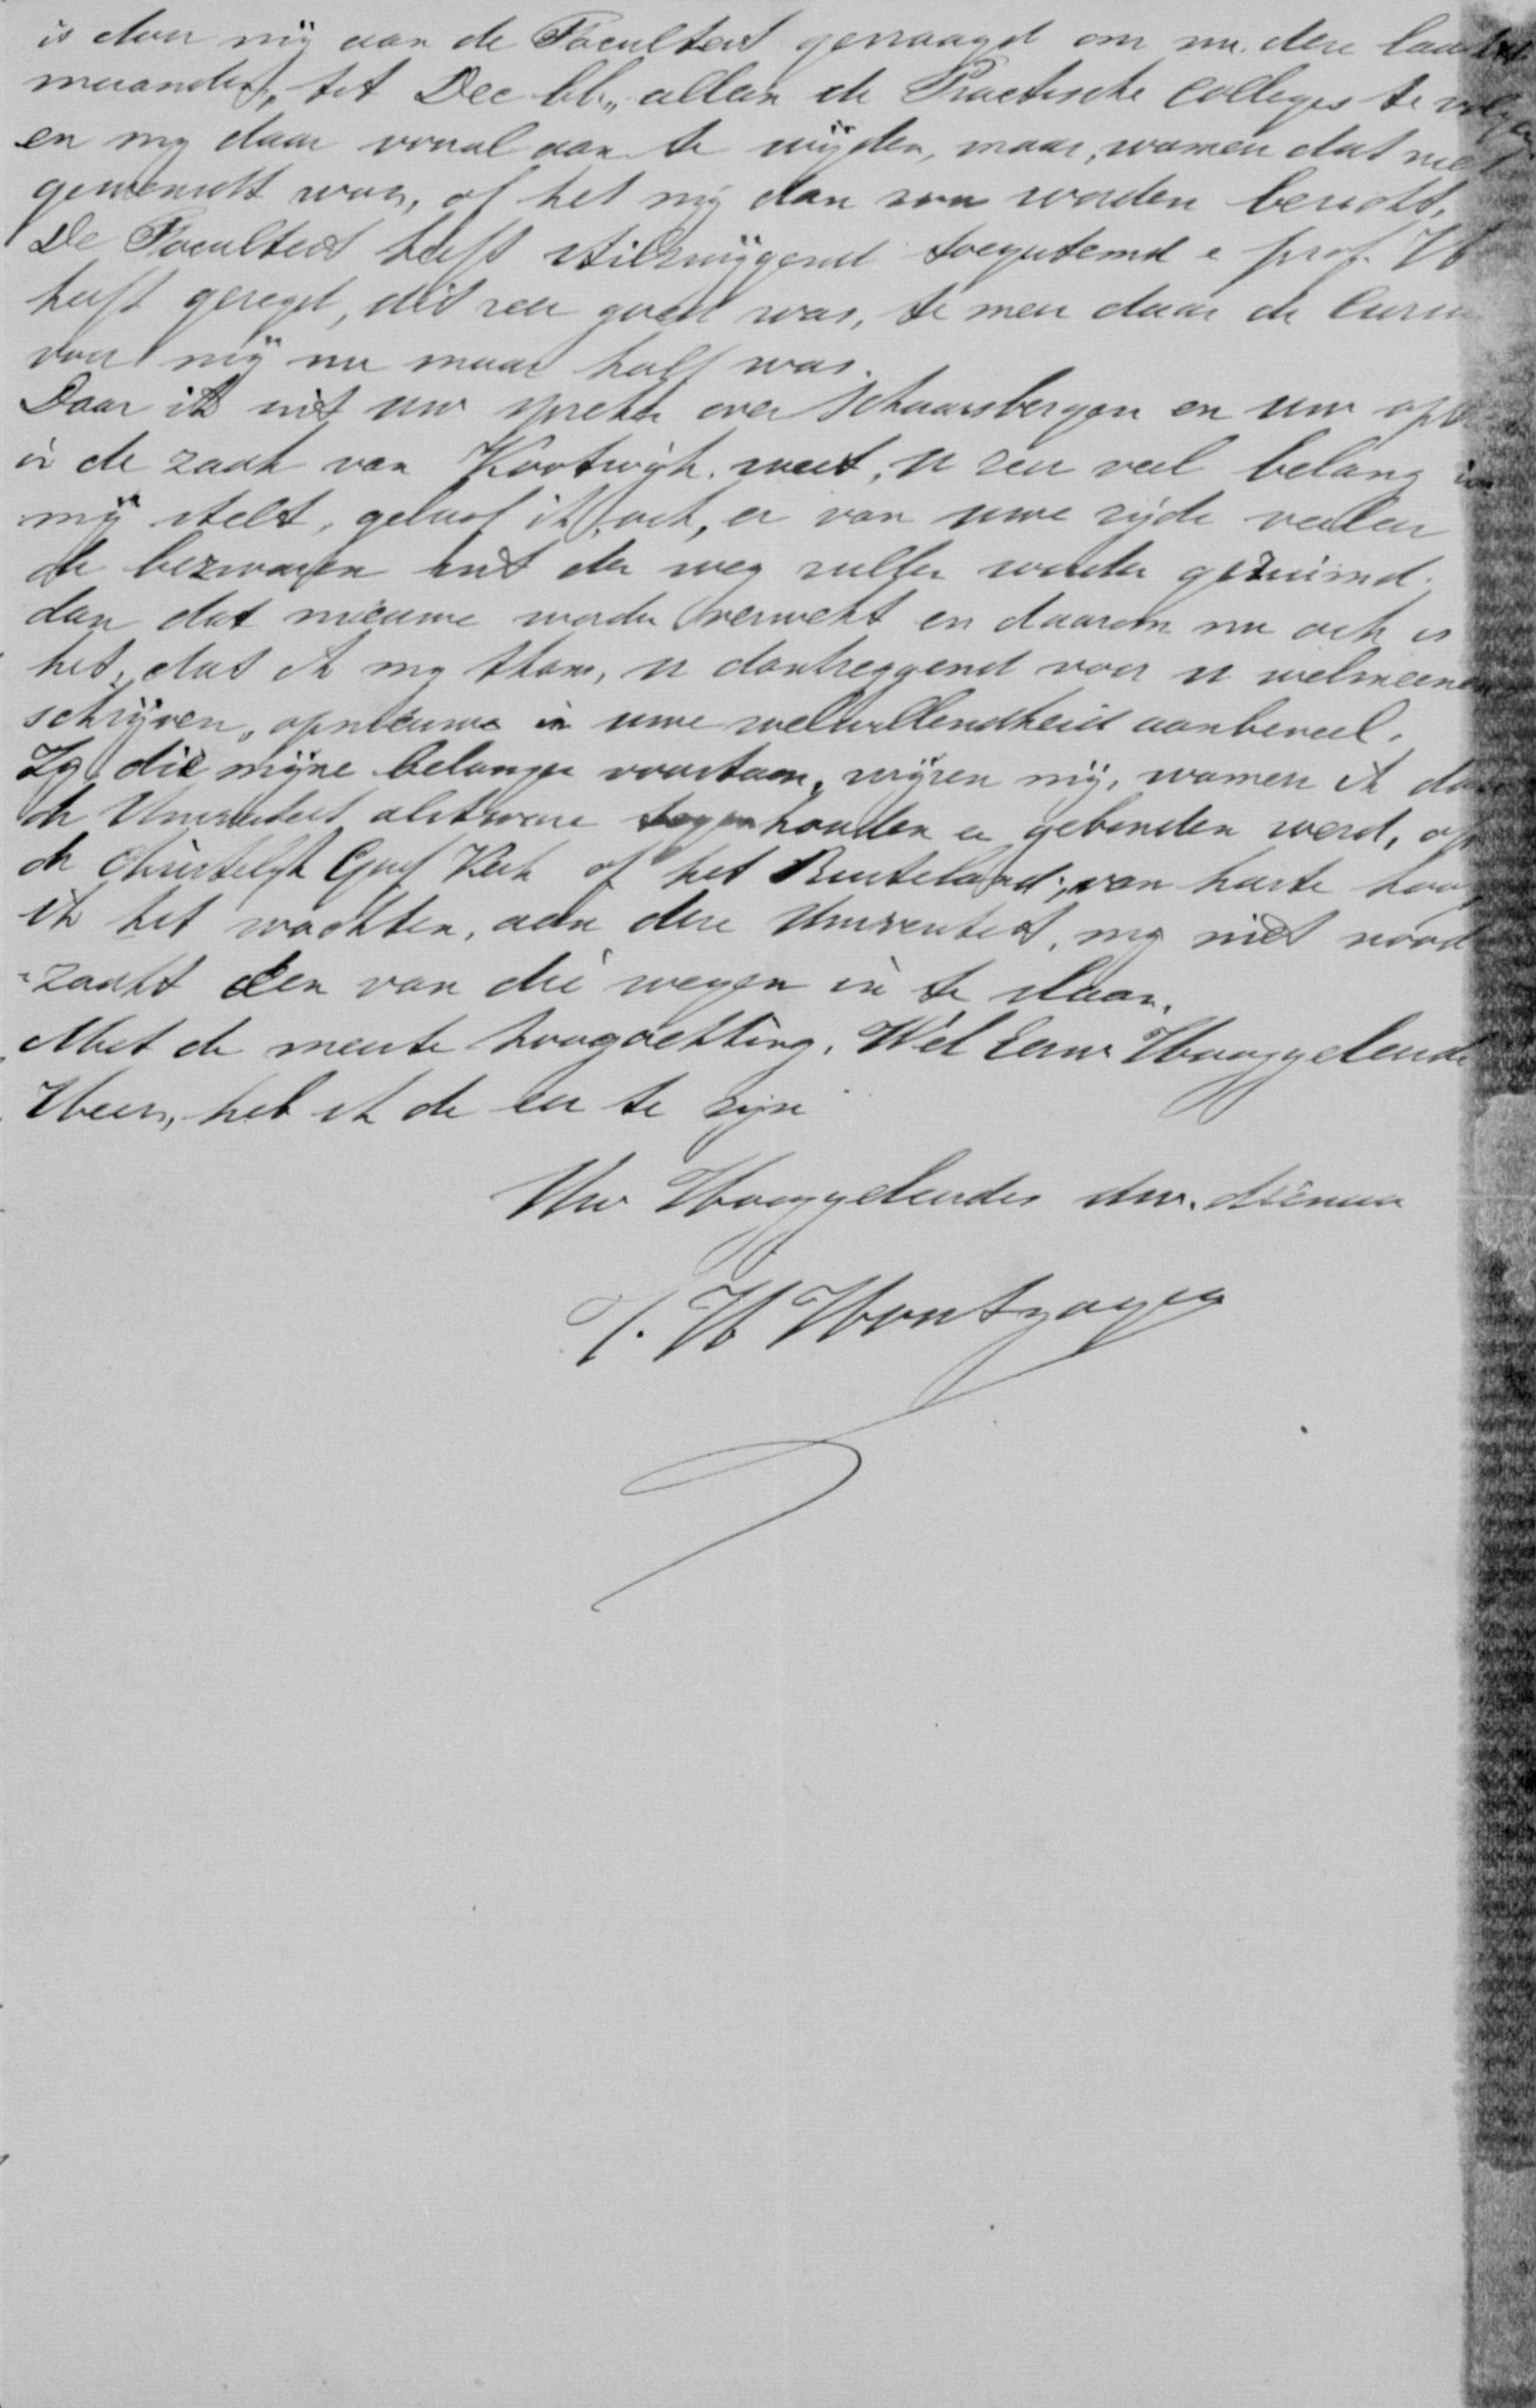 is door mij aan de Faculteit gevraagd om nu deze laatste
maanden, tot Dec bb., alleen de Practische Colleges te volgen
en mij daar vooral aan te wijden, maar, wanneer dat niet
gewenscht was, of het mij dan zou worden bericht.
De Faculteit heeft stilzwijgend toegestemd e prof. H
heeft gezegd, dit zeer goed was, te meer daar de Cursus
voor mij nu maar half was.
Daar ik uit uw spreken over Schaarsbergen en uw
in de zaak van Kootwijk weet, u zeer veel belang in
mij stelt, geloof ik ook, er van uwe zijde veeleer
de bezwaren uit den weg zullen worden geruimd,
dan dat nieuwe worden verwekt en daarom nu ook is
het, dat ik mij thans, u dankzeggend voor u welmeenend
schrijven, opnieuw in uwe welwillendheid aanbeveel.
Zij die mijne belangen voorstaan, wijzen mij, wanneer ik door
de Universiteit alstware tegenhouden en gebonden werd, op
de Christelijk Geref Kerk of het Buitenland; van harte hoop
ik het wachten, aan deze Universiteit, mij niet nood
-zaakt een van die wegen in te slaan.
Met de meeste hoogachting, Wel Eerw. Hooggeleerde
Heer, heb ik de eer te zijn
Uw Hooggeleerdes dw. dienaar
H Houtzagers